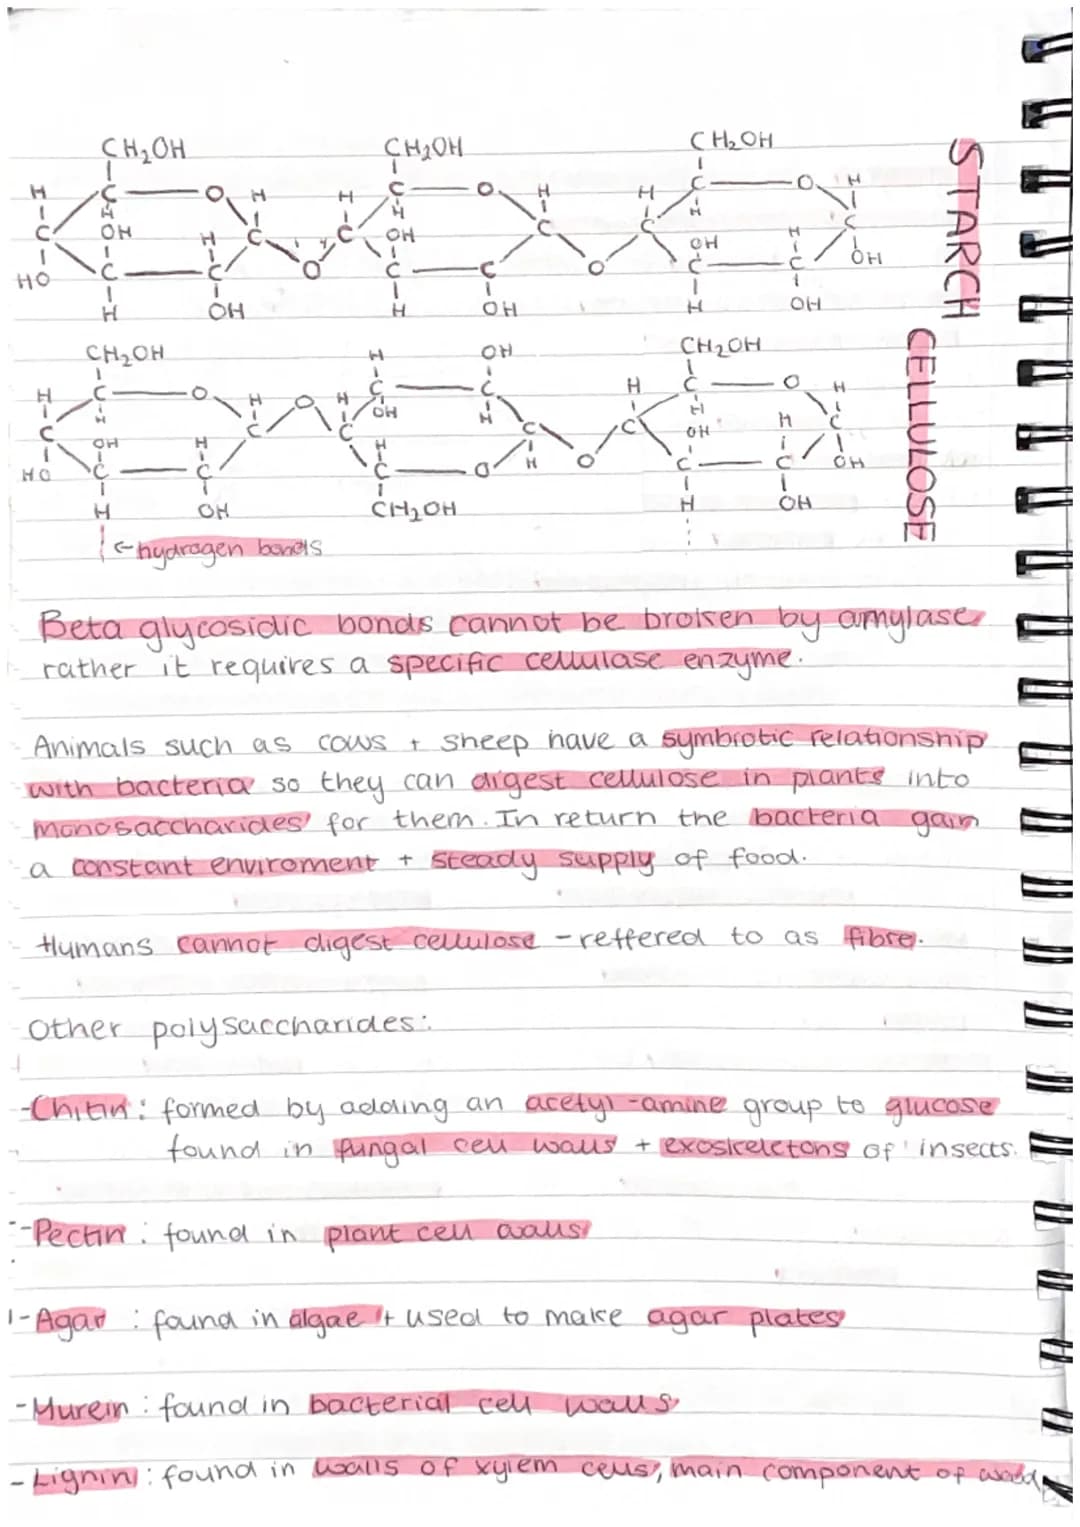 STARCH
CH2OH CH2OH CH2OH
H C O H H C O H H C O H
H H H
C OH H C C OH C C OH H C
HO C C O C C O C C OH
H OH H OH H OH
CELLULOSE
CH2OH H OH CH2OH
H C O H O H C C H C O H
H OH H H H
C OH H C C H C C OH C
HO C C C O H O C C OH
H OH CH2OH H OH
← hydrogen bonds
Beta glycosidic bonds cannot be broken by amylase,
rather it requires a specific cellulase enzyme.
Animals such as cows + sheep have a symbiotic relationship
with bacteria so they can digest cellulose in plants into
monosaccharides for them. In return the bacteria gain
a constant enviroment + steady supply of food.
Humans cannot digest cellulose - reffered to as fibre.
Other polysaccharides:
-Chitin: formed by adding an acetyl-amine group to glucose
found in fungal cell walls + exoskeletons of insects.
-Pectin: found in plant cell walls
-Agar : found in algae + used to make agar plates
-Murein: found in bacterial cell walls
-Lignin: found in walls of xylem cells, main component of wood